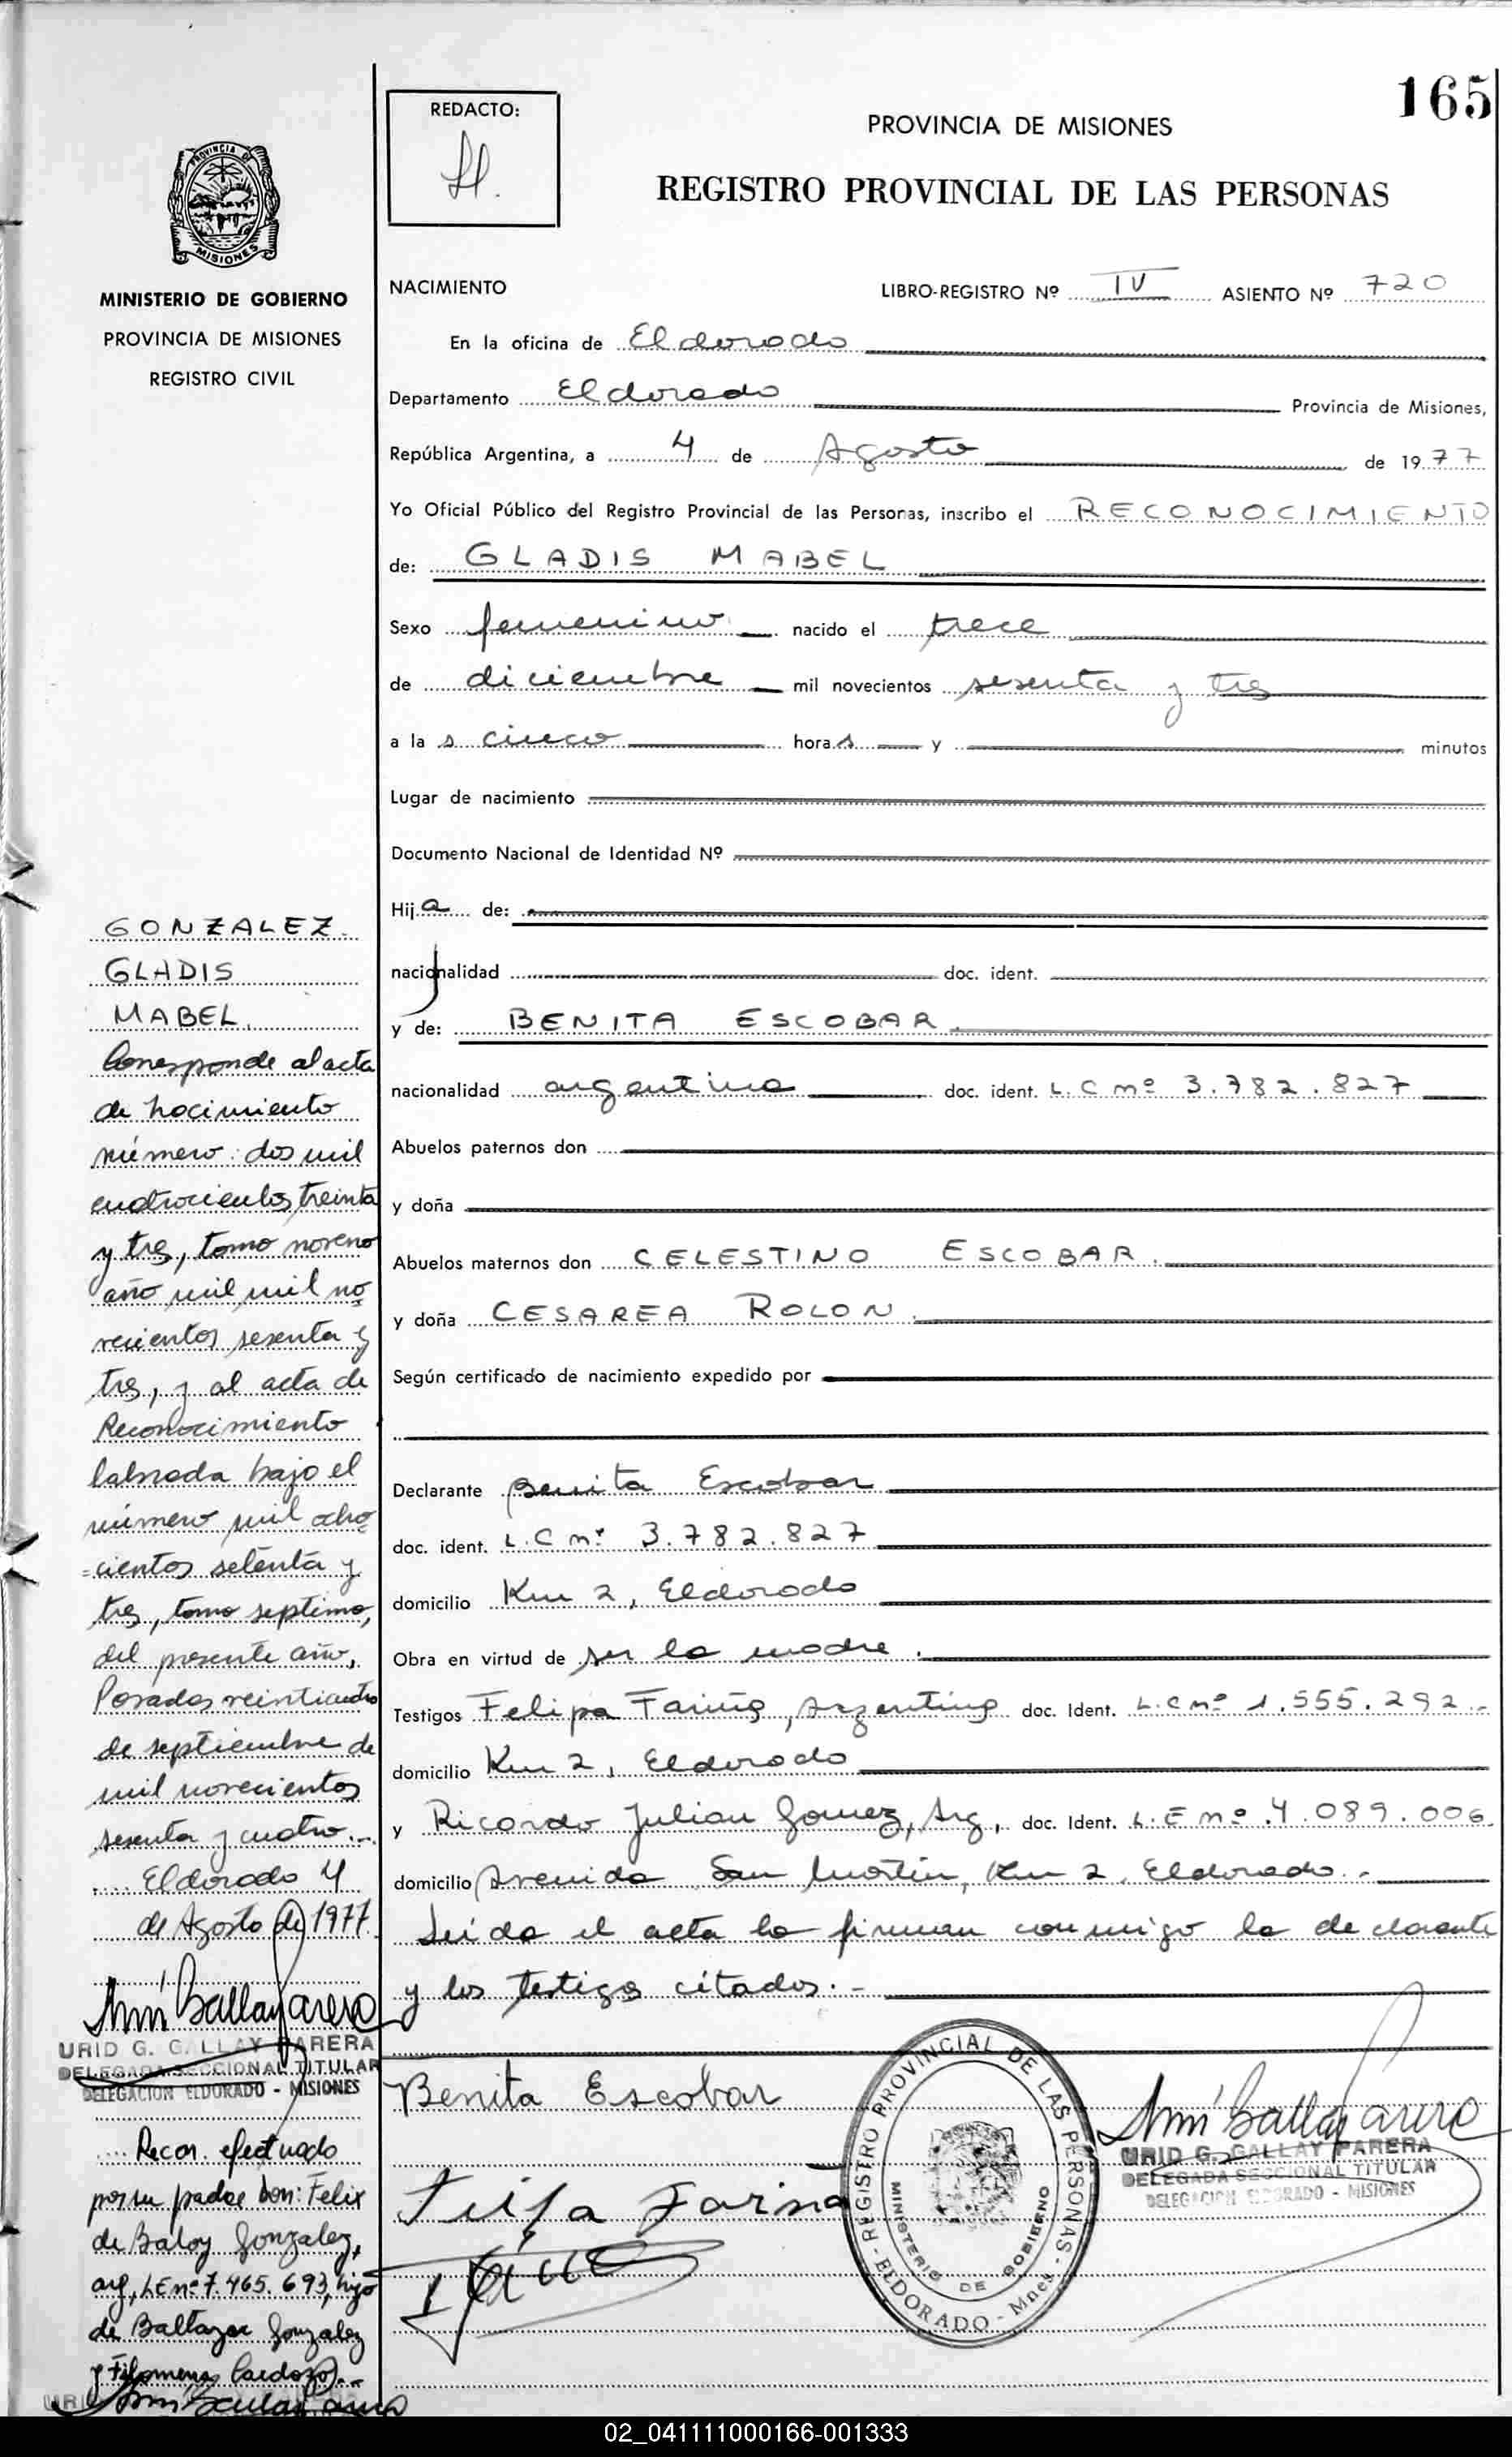 165
REDACTO:
PROVINCIA DE MISIONES
REGISTRO PROVINCIAL DE LAS PERSONAS
PROVINCIA DE
MISIONES
MINISTERIO DE GOBIERNO
PROVINCIA DE MISIONES
REGISTRO CIVIL
NACIMIENTO LIBRO-REGISTRO Nº IV ASIENTO Nº 720
En la oficina de Eldorado
Departamento Eldorado Provincia de Misiones,
República Argentina, a 4 de Agosto de 1977
Yo Oficial Público del Registro Provincial de las Personas, inscribo el RECONOCIMIENTO
de: GLADIS MABEL
Sexo femenino nacido el trece
de diciembre mil novecientos sesenta y tres
a la s cinco hora s y minutos
Lugar de nacimiento
Documento Nacional de Identidad Nº
Hij a de:
nacionalidad doc. ident.
y de: BENITA ESCOBAR
nacionalidad argentina doc. ident. L.C nº 3.782.827
Abuelos paternos don
y doña
Abuelos maternos don CELESTINO ESCOBAR.
y doña CESAREA ROLON.
Según certificado de nacimiento expedido por
Declarante Benita Escobar
doc. ident. L.C nº 3.782.827
domicilio Km 2, Eldorado
Obra en virtud de ser la madre.
Testigos Felipa Fariña, Argentina doc. Ident. L.C nº 1.555.292.-
domicilio Km 2, Eldorado
y Ricardo Julian Gomez, Arg, doc. Ident. L.E nº 4.089.006
domicilio Avenida San Martin, Km 2, Eldorado.-
Leida el acta la firman conmigo la declarante
y los testigos citados.-
Benita Escobar
Fariña
REGISTRO PROVINCIAL DE LAS PERSONAS - ELDORADO - Mnes.
MINISTERIO DE GOBIERNO
URID G. GALLAY PARERA
DELEGADA SECCIONAL TITULAR
DELEGACION ELDORADO - MISIONES
GONZALEZ
GLADIS
MABEL.
Corresponde al acta
de nacimiento
número: dos mil
cuatrocientos treinta
y tres, tomo noveno
año mil mil no
vecientos sesenta y
tres, y al acta de
Reconocimiento
labrada bajo el
número mil ocho
=cientos setenta y
tres, tomo septimo,
del presente año,
Posadas veinticuatro
de septiembre de
mil novecientos
sesenta y cuatro.-
Eldorado 4
de Agosto de 1977.
URID G. GALLAY PARERA
DELEGADA SECCIONAL TITULAR
DELEGACION ELDORADO - MISIONES
Recon. efectuado
por su padre don: Felix
de Baloy Gonzalez,
arg, LE nº 7.465.693, hijo
de Baltazar Gonzalez
y Filomena Cardozo.-
02_041111000166-001333